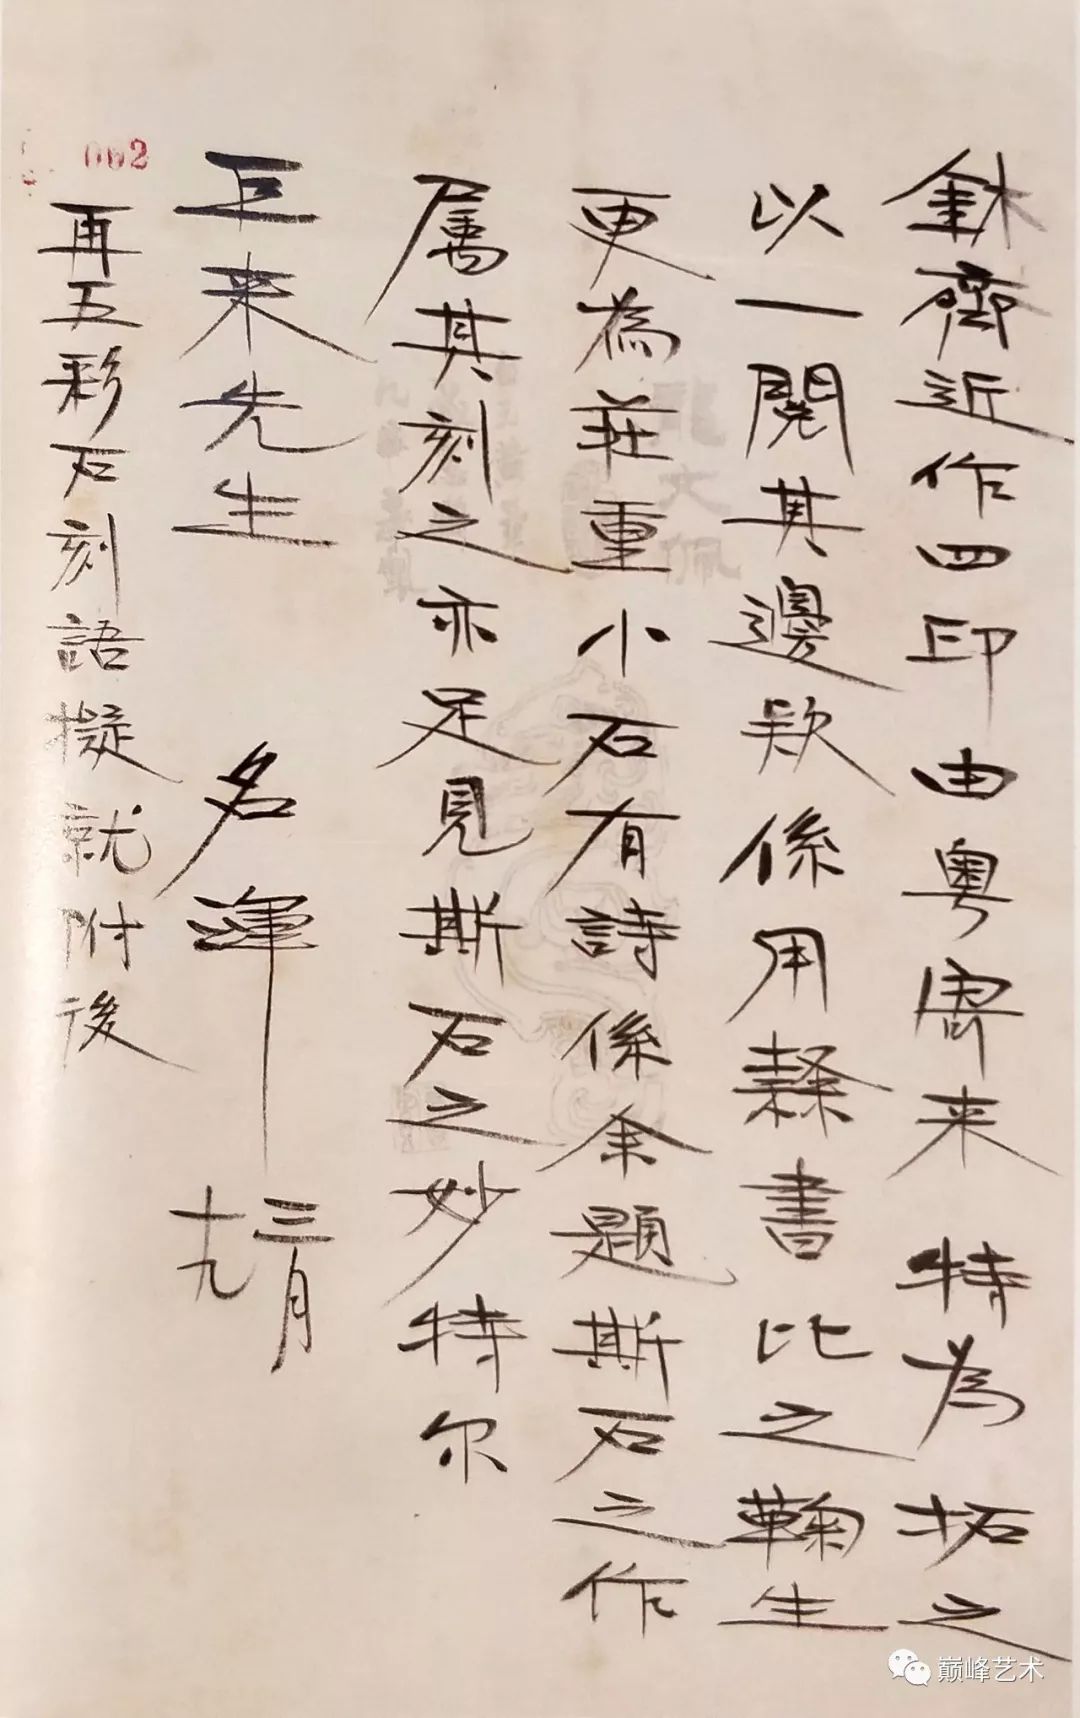 鉥齋近作四印由粤寄来特為拓之
以一閱其邊款係用隸書比之鞠生
更為莊重小石有詩係余題斯石之作
属其刻之亦足見斯石之妙特尔
巨来先生 名渾 三月
十九
再五彩石刻語擬就附後
002
巅峰艺术